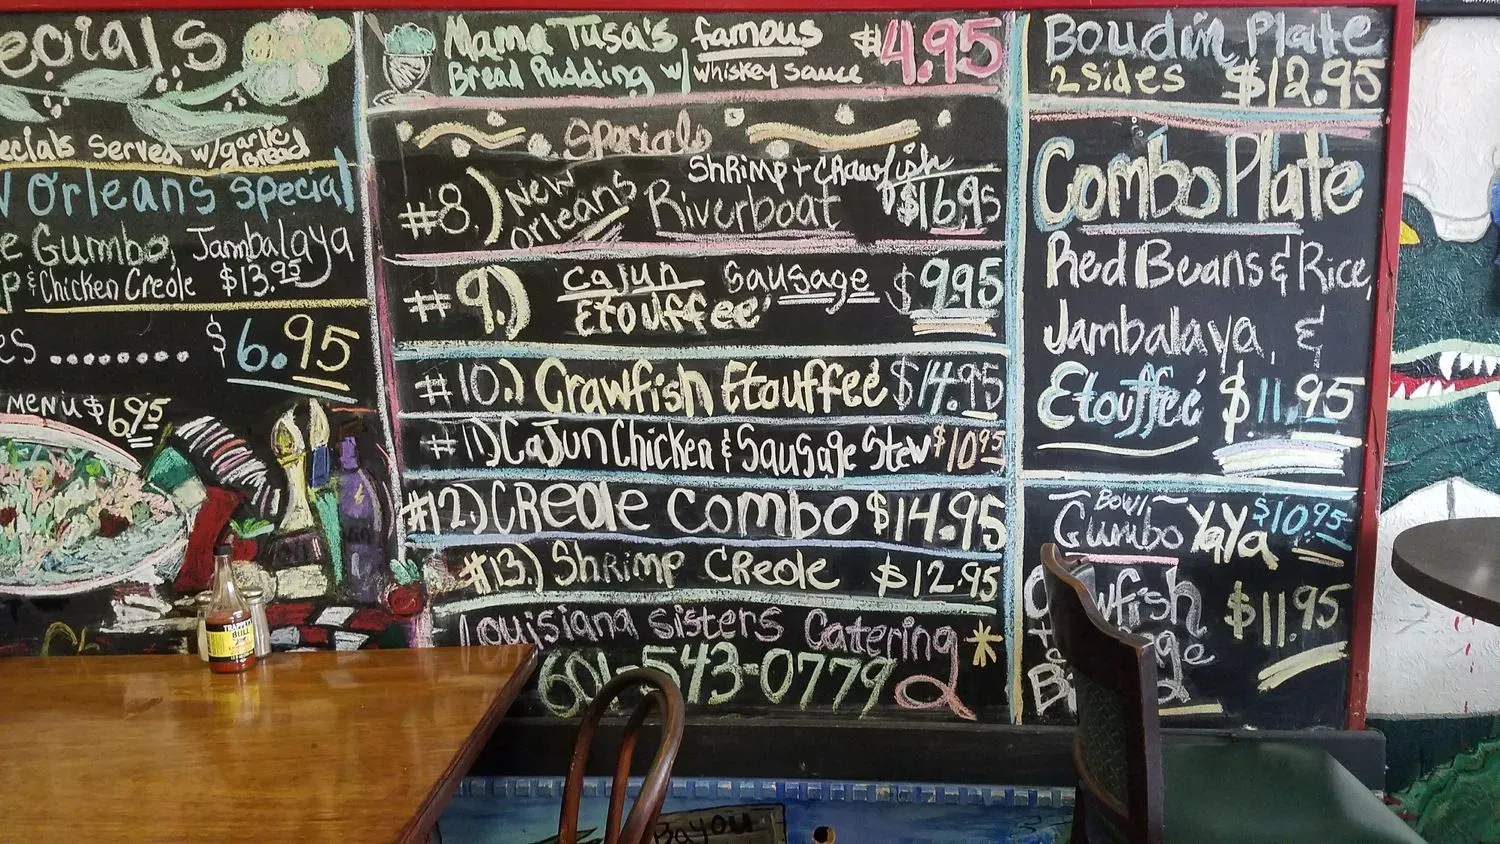 ecials
ecials Served w/garlic Bread
Orleans special
e Gumbo, Jambalaya
P & Chicken Creole $13.95
es ........ $6.95
MENU $6.95
TRAPPEY'S
BULL
Mama Tusa's famous $4.95
Bread Pudding w/ whiskey sauce
Specials
Shrimp + Crawfish
#8.) New Orleans Riverboat $16.95
#9.) Cajun Sausage $9.95
Etouffee'
#10.) Crawfish Etouffeé $14.95
#11.) Cajun Chicken & Sausage Stew $10.95
#12.) Creole Combo $14.95
#13.) Shrimp Creole $12.95
Louisiana Sisters Catering
601-543-0779
Boudin Plate
2 Sides $12.95
Combo Plate
Red Beans & Rice,
Jambalaya, &
Etouffeé $11.95
Bowl
Gumbo YaYa $10.95
wfish $11.95
Bayou